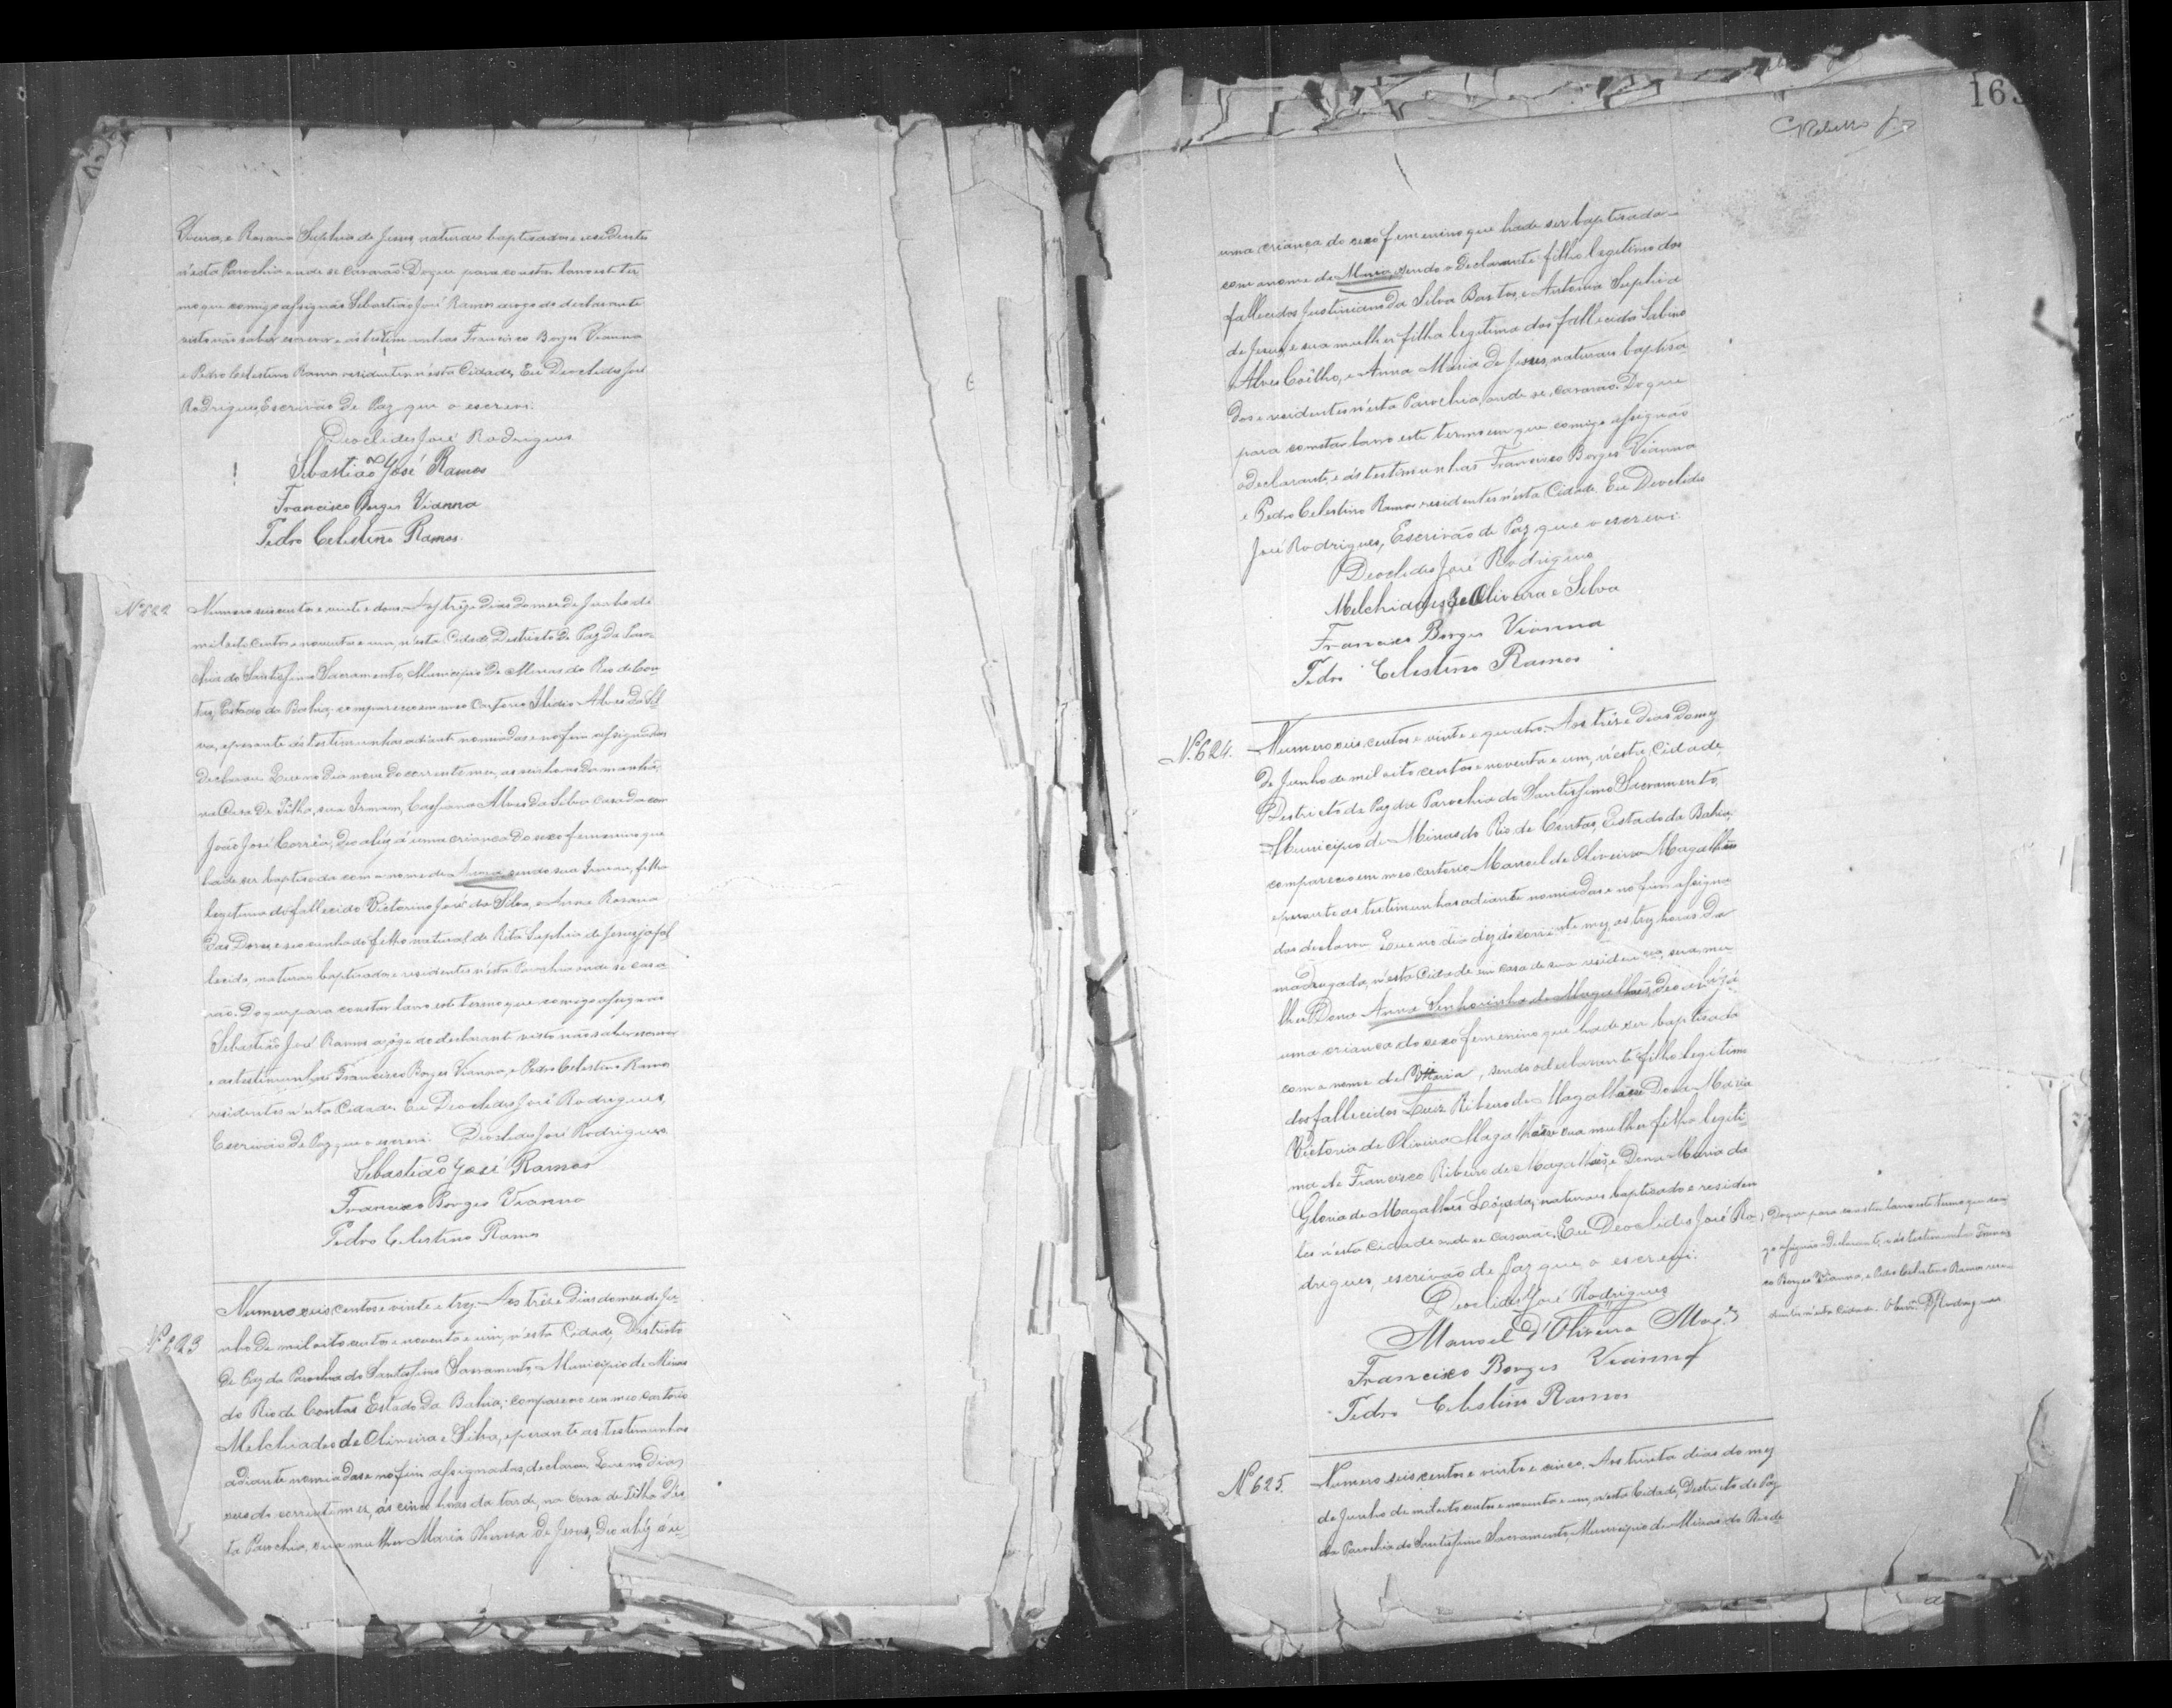 Vieira, e Rosaria Sophia de Jesus, naturaes baptisados e residentes
n'esta Parochia onde se casarão. Do que para constar lavro este ter
mo que comigo assignão Sebastião José Ramos a rogo do declarante
visto não saber escrever e ás testimunhas Francisco Borges Vianna
e Pedro Celestino Ramos residentes n'esta Cidade, Eu Deoclides José
Rodrigues Escrivão de Paz que o escrevi.
Deoclides José Rodrigues
Sebastião José Ramos
Francisco Borges Vianna
Pedro Celestino Ramos.
Nº 622
Numero seis centos e vinte e dous. Aos treze dias do mez de Junho de
mil oito centos e noventa e um, n'esta Cidade Districto de Paz da Paro
chia do Santissimo Sacramento, Municipio de Minas do Rio de Con
tas, Estado da Bahia, compareceo em meo Cartorio Ilidio Alves da Sil
va, e perante ás testimunhas adiante nomeadas e no fim assignadas
declarou: Que no dia nove do corrente mez, as seis horas da manhã,
na Casa de Telha, sua Irmam, Cassiana Alves da Silva casada com
João José Corrêa, deo a lúz á uma criança do sexo femenino que
hade ser baptisada com o nome de Anna, sendo sua Irmam, filha
legitima do fallecido Victorino José da Silva, e Anna Rosaria
das Dores, e seo cunhado filho natural de Rita Sophia de Jesus, já fal
lecida, naturaes baptisados e residentes n'esta Parochia onde se casa
rão. Do que para constar lavro este termo que comigo assignão
Sebastião José Ramos a rôgo do declarante visto não saber escrever
e as testimunhas Francisco Borges Vianna, e Pedro Celestino Ramos
residentes n'esta Cidade. Eu Deoclides José Rodrigues,
Escrivão de Paz que o escrevi. Deoclides José Rodrigues
Sebastião José Ramos
Francisco Borges Vianna
Pedro Celestino Ramos
Nº 623
Numero seis centos e vinte e trez. Aos trêse dias do mez de Ju
nho de mil oito centos e noventa e um, n'esta Cidade, Districto
de Paz da Parochia do Santissimo Sacramento, Municipio de Minas
do Rio de Contas Estado da Bahia, compareceo em meo cartorio
Melchiades de Oliveira e Silva, e perante as testimunhas
adiante nomeadas e no fim assignadas, declarou: Que no dia
seis do corrente mez, ás cinco horas da tarde, na casa de Telha des
ta Parochia, sua mulher Maria de Jesus, deo a lúz á
163
Rebello
uma criança do sexo femenino que hade ser baptisada
com o nome de Maria, sendo o declarante filho legitimo dos
fallecidos Justiniano da Silva Bastos, e Antonia Sophia
de Jesus, e sua mulher filha legitima dos fallecidos Sabino
Alves Coêlho, e Anna Maria de Jesus, naturaes baptisa
dos e residentes n'esta Parochia, onde se casarão. Do que
para constar lavro este termo em que comigo assignão
o declarante, e ás testimunhas Francisco Borges Vianna
e Pedro Celestino Ramos residentes n'esta Cidade. Eu Deoclides
José Rodrigues, Escrivão de Paz, que o escrevi.
Deoclides José Rodrigues
Melchiades de Oliveira e Silva
Francisco Borges Vianna
Pedro Celestino Ramos
Nº 624.
Numero seis centos e vinte e quatro. Aos trêse dias do mez
de Junho de mil oito centos e noventa e um, n'esta Cidade
Districto de Paz da Parochia do Santissimo Sacramento,
Municipio de Minas do Rio de Contas, Estado da Bahia,
compareceo em meo cartorio Manoel de Oliveira Magalhães
e perante as testimunhas adiante nomeadas e no fim assigna
das declarou: Que no dia dez do corrente mez, as trez horas da
madrugada, n'esta Cidade em casa de sua residencia, sua mu
lher Dona Anna Senhorinha de Magalhães, deo a lúz á
uma criança do sexo femenino que hade ser baptisada
com o nome de Maria, sendo o declarante filho legitimo
dos fallecidos Luiz Ribeiro de Magalhães e Dona Maria
Victoria de Oliveira Magalhães e sua mulher filha legiti
ma de Francisco Ribeiro de Magalhães, e Dona Maria da
Gloria de Magalhães Lousada, naturaes baptisados e residen
tes n'esta Cidade onde se casarão, Eu Deoclides José Ro
drigues, escrivão de Paz que o escrevi.
Do que para constar lavro este termo que comi
go assignão o declarante, e ás testimunhas Francis
co Borges Vianna, e Pedro Celestino Ramos resi
dentes n'esta Cidade. Rodrigues
Deoclides José Rodrigues
Manoel d'Oliveira Mag.es
Francisco Borges Vianna
Pedro Celestino Ramos
Nº 625.
Numero seis centos e vinte e cinco. Aos trinta dias do mez
de Junho de mil oito centos e noventa e um, n'esta Cidade, Districto de Paz
da Parochia do Santissimo Sacramento, Municipio de Minas do Rio de